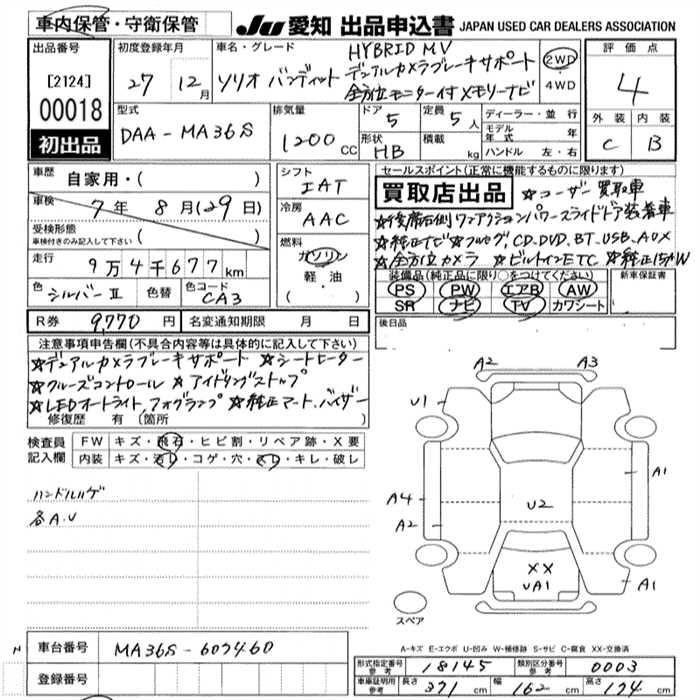 車内保管・守衛保管
JU 愛知 出品申込書 JAPAN USED CAR DEALERS ASSOCIATION
出品番号
[2124]
00018
初出品
初度登録年月
27 12月
車名・グレード
HYBRID MV
ソリオ バンディット デュアルカメラブレーキサポート
全方位モニター付メモリーナビ
2WD
4WD
評価点
4
外装 内装
C B
型式
DAA-MA36S
排気量
1200cc
ドア
5
定員
5人
形状
HB
積載
kg
ディーラー・並行
モデル年式 年
ハンドル 左・右
車歴
自家用・( )
車検
7年8月(29日)
受検形態
車検付きのみ記入して下さい ( )
走行
9万4千677km
色
シルバーII
色替
色コード
CA3
シフト
IAT
冷房
AAC
燃料
ガソリン
軽油
( )
セールスポイント(正常に機能するものに限ります)
買取店出品
☆ユーザー買取車
☆後席右側ワンアクションパワースライドドア装着車
☆純正ナビ ☆フルセグ,CD,DVD,BT,USB,AUX
☆全方位カメラ ☆ビルトインETC ☆純正15AW
装備品(純正品に限り○をつけてください)
PS PW エアB AW
SR ナビ TV カワシート
新車保証書
後日品
R券 9,770円
名変通知期限 月 日
注意事項申告欄(不具合内容等は具体的に記入して下さい)
☆デュアルカメラブレーキサポート ☆シートヒーター
☆クルーズコントロール ☆アイドリングストップ
☆LEDオートライト,フォグランプ ☆純正マット,バイザー
修復歴 有(箇所 )
検査員記入欄
FW キズ・飛石・ヒビ割・リペア跡・X要
内装 キズ・汚レ・コゲ・穴・スレ・キレ・破レ
ハンドルハゲ
各A.U
A2 A3
U1
A1
A4
U2
A2
XX
UA1
A1
スペア
A-キズ E-エクボ U-凹み W-補修跡 S-サビ C-腐食 XX-交換済
N
車台番号 MA36S-607460
登録番号
形式指定番号 参考 18145
類別区分番号 参考 0003
車庫証明用 参考 長さ 371cm 幅 162cm 高さ 174cm